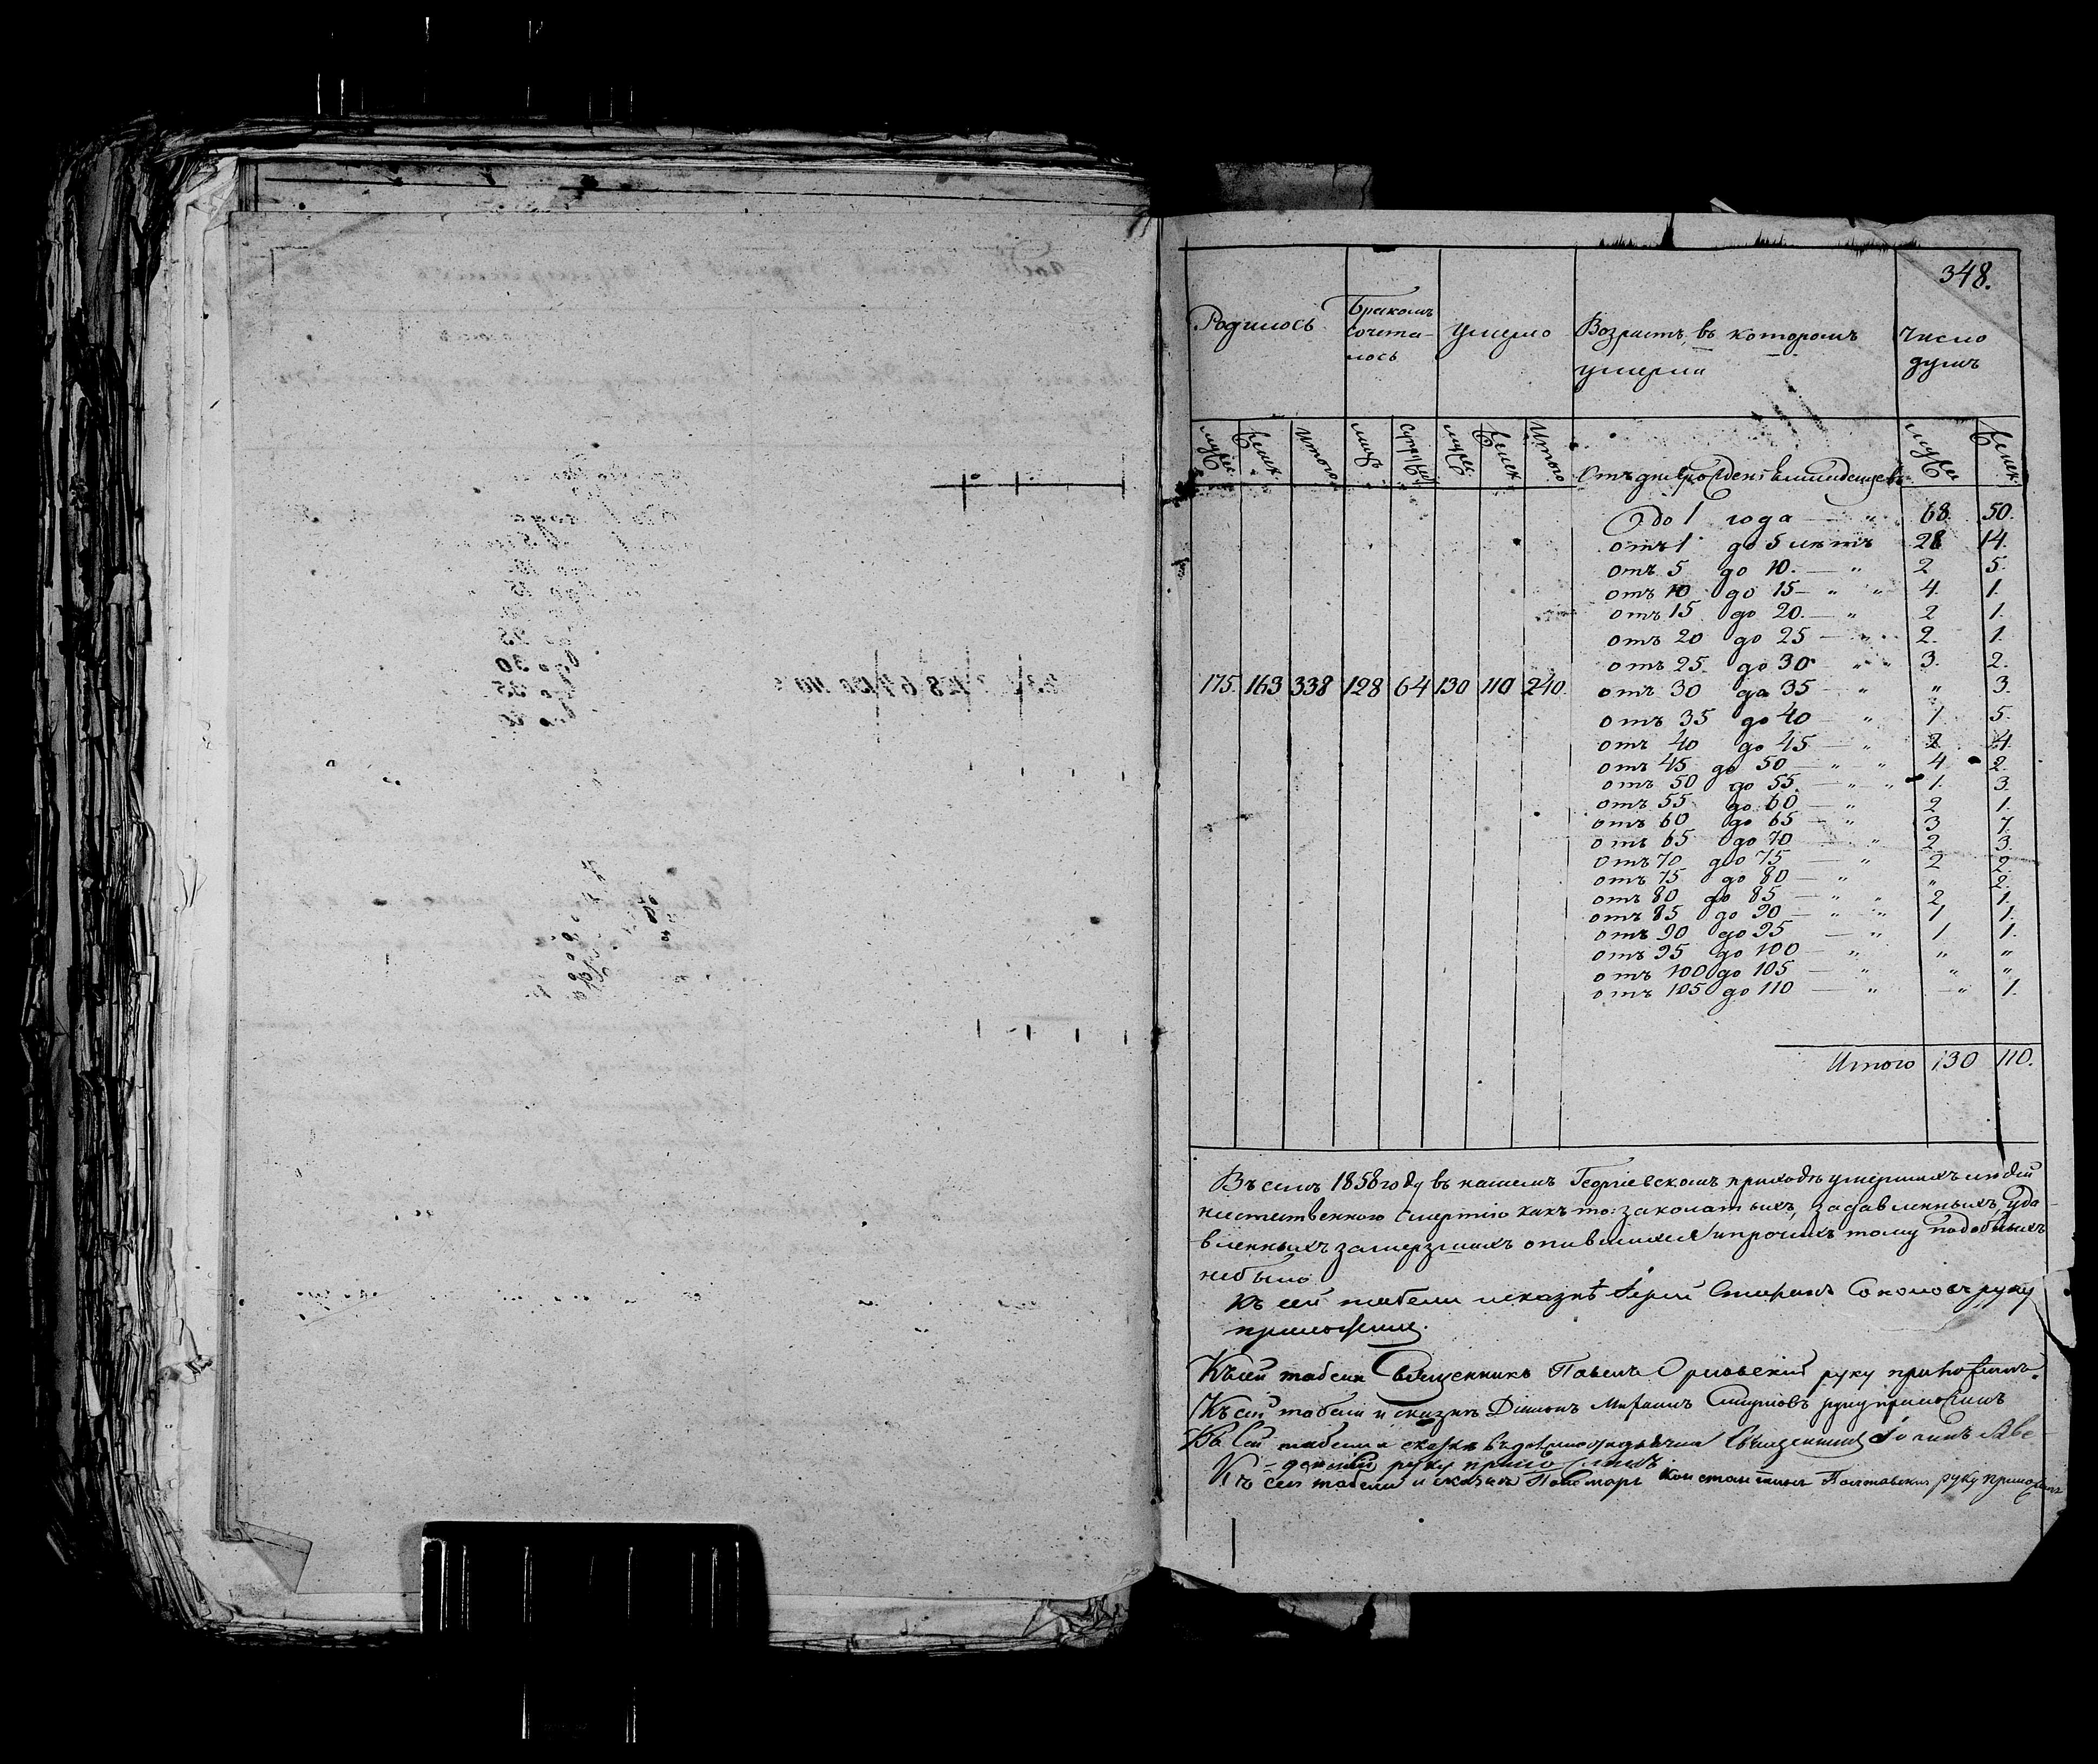 348.
Родилось Бракомъ сочета- лось умерло Возрастъ, въ которомъ умерли Число душъ
мужес. женск. Итого лицъ супруж. мужес. женск. Итого Отъ дня рожденія младенцевъ мужес женск.
до 1 года — " 68. 50.
отъ 1 до 5 летъ 28 14.
отъ 5 до 10. — " 2 5.
отъ 10 до 15 — " " 4. 1.
отъ 15 до 20. — " 2 1.
отъ 20 до 25 — " 2. 1.
отъ 25 до 30 " " 3. 2.
175. 163 338 128 64 130 110 240. отъ 30 до 35 — " " 3.
отъ 35 до 40 — " 1 5.
отъ 40 до 45 — " 2 4.
отъ 45 до 50 — " " 4 2.
отъ 50 до 55. — " " 1. 3.
отъ 55 до 60 — " 2 1.
отъ 60 до 65 — " 3 7.
отъ 65 до 70 — " 2 3.
отъ 70 до 75 — " 2 2.
отъ 75 до 80 — " " 2.
отъ 80 до 85 — " " 2 1.
отъ 85 до 90 — " " 1 1.
отъ 90 до 95 — " 1 1.
отъ 95 до 100 — " " "
отъ 100 до 105 — " " "
отъ 105 до 110 — " — " 1.
Итого 130 110.
Въ семъ 1858 году въ нашемъ Георгіевскомъ приходѣ умершихъ людей
неестественною смертію какъ то: заколотыхъ, задавленныхъ, уда
вленныхъ замерзшихъ опившихся и прочихъ тому подобныхъ
небыло
Къ сей табели и сказкѣ Іерей Стефанъ Соколовъ руку
приложилъ.
Къ сей табели Священникъ Павелъ Орловскій руку приложилъ.
Къ сей табели и сказкѣ Діаконъ Михаилъ Смирновъ руку приложилъ
Къ сей табели и сказкѣ Священникъ Іоаннъ
руку приложилъ.
Къ сей табели и сказкѣ Пономарь Константинъ Полтавскій руку приложилъ